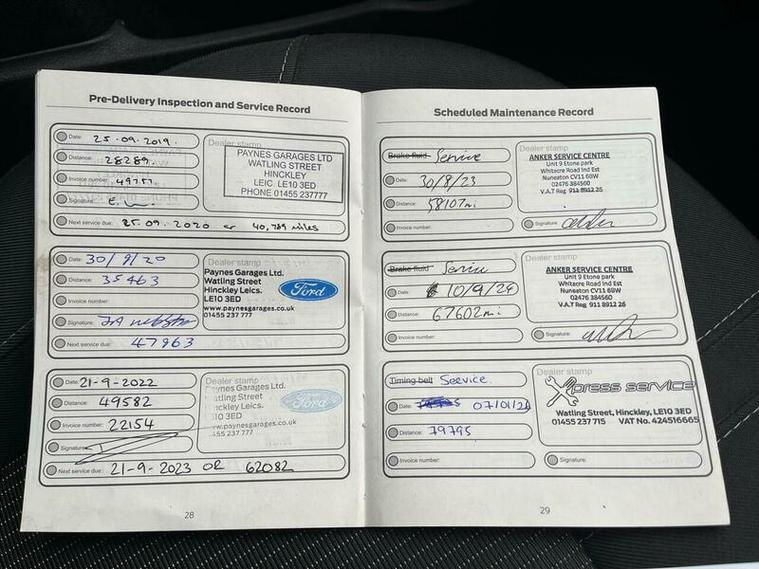 Pre-Delivery Inspection and Service Record
Date: 25.09.2019.
Distance: 28289.
Invoice number:
Signature:
Next service due: 25.09.2020 or 40,789 miles
Dealer stamp
PAYNES GARAGES LTD
WATLING STREET
HINCKLEY
LEIC. LE10 3ED
PHONE 01455 237777
Date: 30/9/20
Distance: 35463
Invoice number:
Signature:
Next service due: 47963
Dealer stamp
Paynes Garages Ltd.
Watling Street
Hinckley Leics.
LE10 3ED
www.paynesgarages.co.uk
01455 237 777
Ford
Date: 21-9-2022
Distance: 49582
Invoice number: 22154
Signature:
Next service due: 21-9-2023 OR 62082
Dealer stamp
Paynes Garages Ltd.
atling Street
inckley Leics.
10 3ED
w.paynesgarages.co.uk
455 237 777
Ford
28
Scheduled Maintenance Record
Brake fluid Service
Date: 30/8/23
Distance: 58107mi
Invoice number:
Dealer stamp
ANKER SERVICE CENTRE
Unit 9 Etone park
Whitacre Road Ind Est
Nuneaton CV11 6BW
02476 384560
V.A.T Reg 911 8912 26
Signature:
Brake fluid Service
Date: 10/9/24
Distance: 67602mi
Invoice number:
Dealer stamp
ANKER SERVICE CENTRE
Unit 9 Etone park
Whitacre Road Ind Est
Nuneaton CV11 6BW
02476 384560
V.A.T Reg 911 8912 26
Signature:
Timing belt Service
Date: 07/01/26
Distance: 79795
Invoice number:
Dealer stamp
Xpress service
Watling Street, Hinckley, LE10 3ED
01455 237 715 VAT No. 424516665
Signature:
29